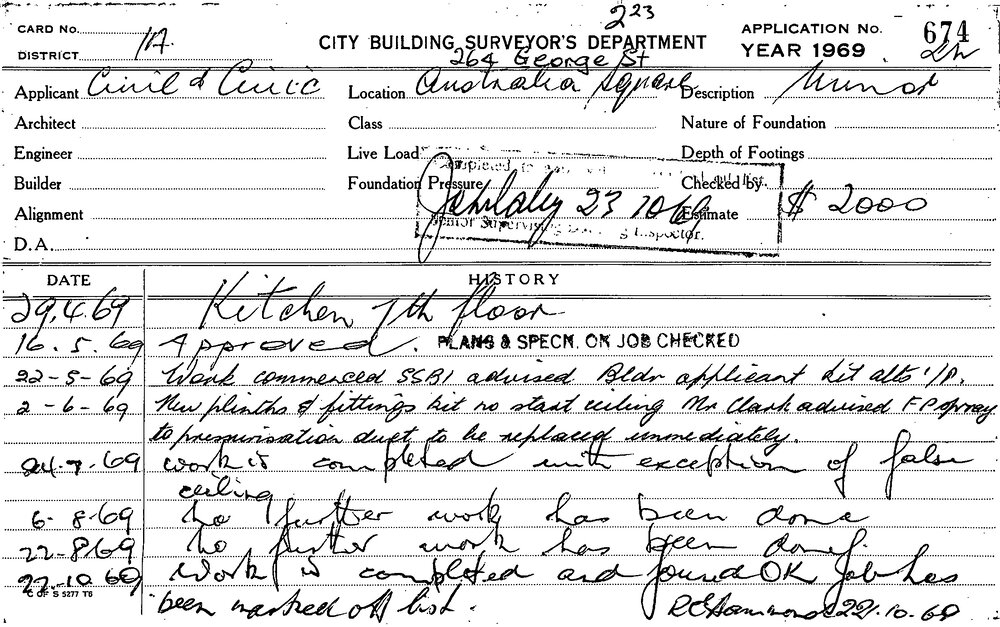 223
CARD No.
1A
DISTRICT
CITY BUILDING SURVEYOR'S DEPARTMENT
APPLICATION No. 674
YEAR 1969
264 George St
Applicant Civil & Civic
Location Australia Square
Description Minor
Architect
Class
Nature of Foundation
Engineer
Live Load
Depth of Footings
Builder
Foundation Pressure
Checked by
Completed to
list.
23 10 69
Senior Supervising Building Inspector.
Alignment
Estimate $ 2000
D.A.
DATE
HISTORY
29.4.69 Kitchen 7th floor
16.5.69 Approved. PLANS & SPECN. ON JOB CHECKED
22-5-69 Work commenced SSBI advised Bldr applicant kit alts I/P.
2-6-69 New plinths & fittings kit no start ceiling Mr Clark advised F P spray
to pressurisation duct to be replaced immediately.
24.7.69 work is completed with exception of false
ceiling
6-8-69 No further work has been done
22-8-69 No further work has been done.
22.10.69 Work is completed and found OK Job has
been marked off list. 22.10.69
C OF S 5277 T6